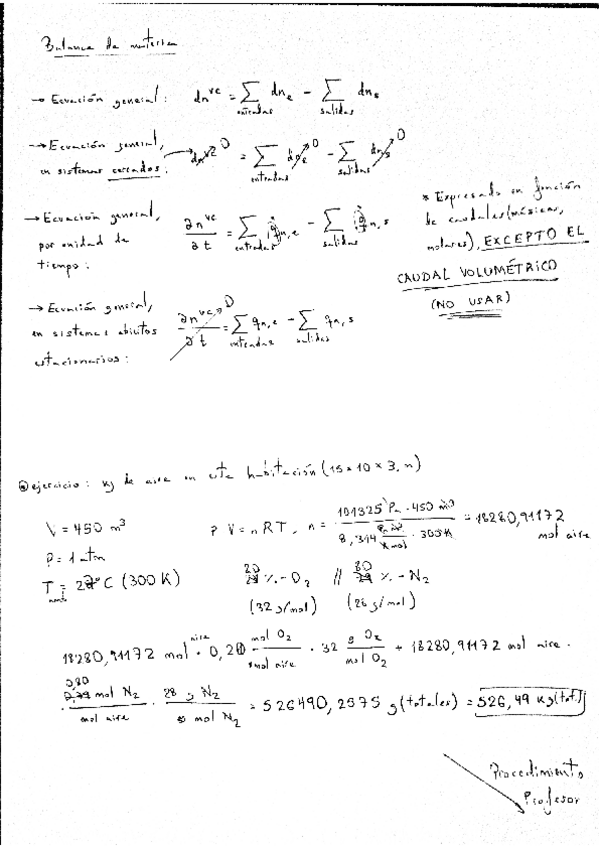 Balance de materia
→ Ecuación general: dn^vc = Σ_entradas dn_e − Σ_salidas dn_s
→ Ecuación general, en sistemas cerrados: dn^vc 0 = Σ_entradas dn_e 0 − Σ_salidas dn_s 0
→ Ecuación general, por unidad de tiempo: ∂n^vc / ∂t = Σ_entradas q̇_n,e − Σ_salidas q̇_n,s
* Expresado en función
de caudales (másicos,
molares), EXCEPTO EL
CAUDAL VOLUMÉTRICO
(NO USAR)
→ Ecuación general, en sistemas abiertos estacionarios: ∂n^vc / ∂t 0 = Σ_entradas q_n,e − Σ_salidas q_n,s
ejercicio: kg de aire en esta habitación (15 × 10 × 3, m)
V = 450 m³
P = 1 atm
T = 27°C (300 K)
P V = n R T, n = 101325 Pa · 450 m³ / 8,314 Pa m³ / K mol · 300 K = 18280,91172 mol aire
20 21 % - O₂ // 80 79 % - N₂
(32 g/mol) (28 g/mol)
18280,91172 mol aire · 0,20 mol O₂ / mol aire · 32 g O₂ / mol O₂ + 18280,91172 mol aire ·
· 0,80 0,79 mol N₂ / mol aire · 28 g N₂ / mol N₂ = 526490,2575 g (totales) = 526,49 kg (tot.)
Procedimiento
Profesor